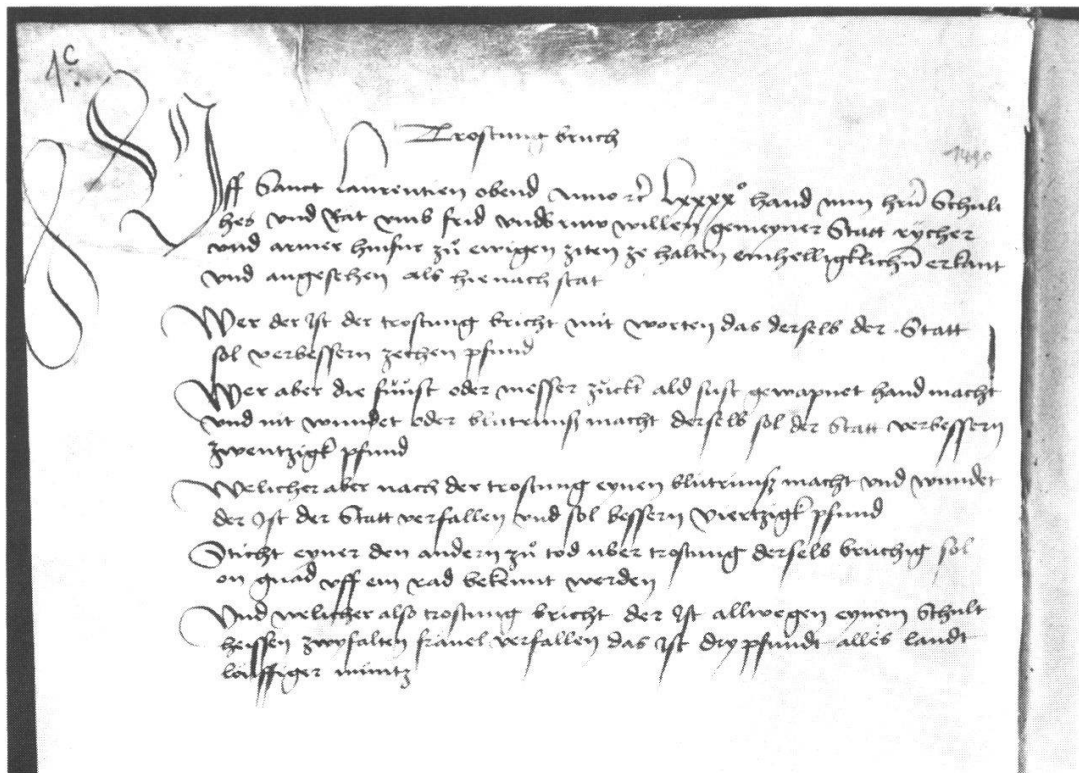 1c
Trostung bruch
1490
Uff Sanct Laurentien obend Anno etc Lxxxx° hand min hrn Schult
hes vnd Rat vmb frid vnd ruw willen gemeyner Statt rycher
vnd armer hinfur zů ewigen ziten ze halten einhelligklichen erkant
vnd angesehen als hienach stat
Wer der ist der trostung bricht mit worten das derselb der Statt
sol verbessern zechen pfund
Wer aber die fůnst oder messer zuckt ald sust gewapnet hand macht
vnd nit wundet oder blutrunß macht derselb sol der Statt verbessern
zwentzigk pfund
Welicher aber nach der trostung eynen blutrunß macht vnd wundet
der ist der Statt verfallen vnd sol bessern viertzigk pfund
Sticht eyner den andern zů tod uber trostung derselb bruchig sol
on gnad vff ein rad bekennt werden
Und welicher also trostung bricht der ist allwegen eynem Schult
heissen zwyfalten fräuel verfallen das ist dry pfundt alles landt
löuffiger müntz